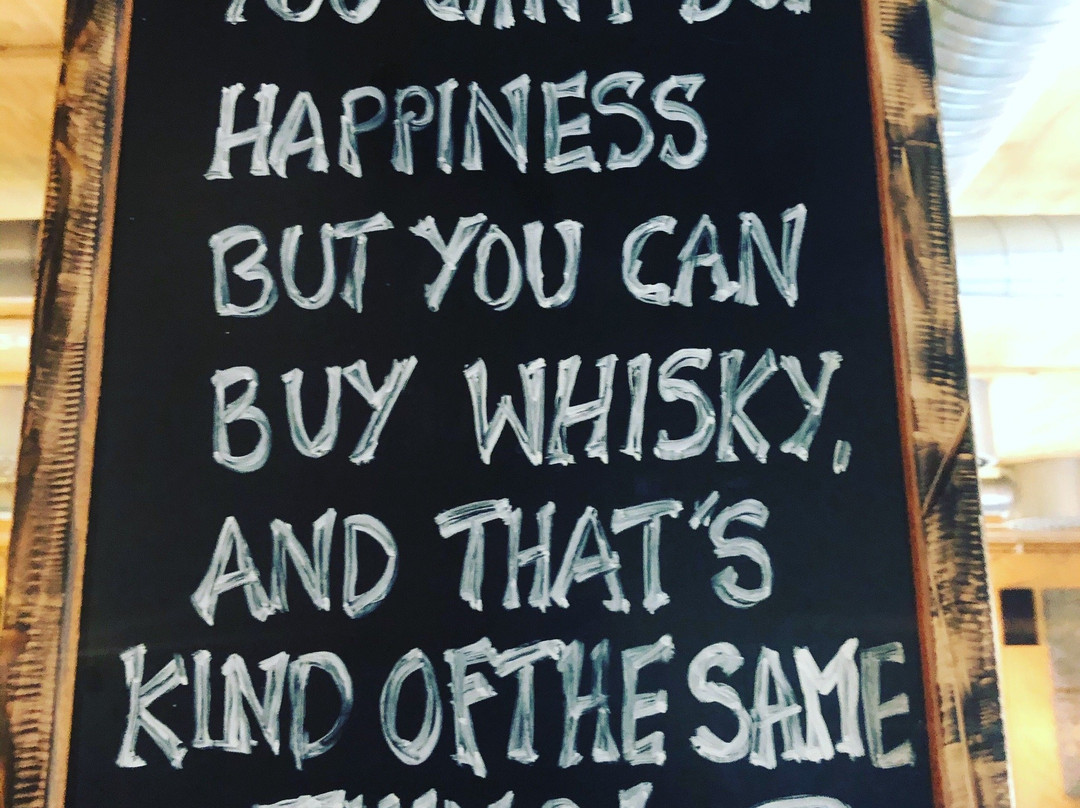 YOU CAN'T BUY
HAPPINESS
BUT YOU CAN
BUY WHISKY,
AND THAT'S
KIND OF THE SAME